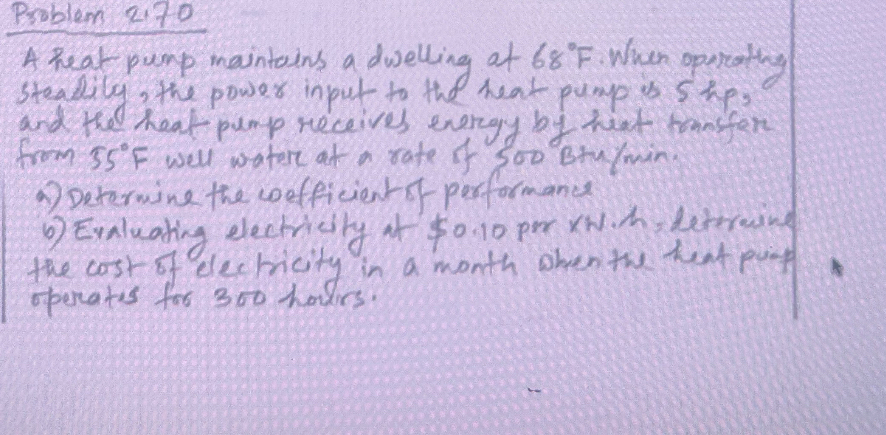 Problem 2.70
A heat pump maintains a dwelling at 68°F. When operating
steadily, the power input to the heat pump is 5 hp,
and the heat pump receives energy by heat transfer
from 55°F well water at a rate of 500 Btu/min.
a) Determine the coefficient of performance
b) Evaluating electricity at $0.10 per kW.h, determine
the cost of electricity in a month when the heat pump
operates for 300 hours.